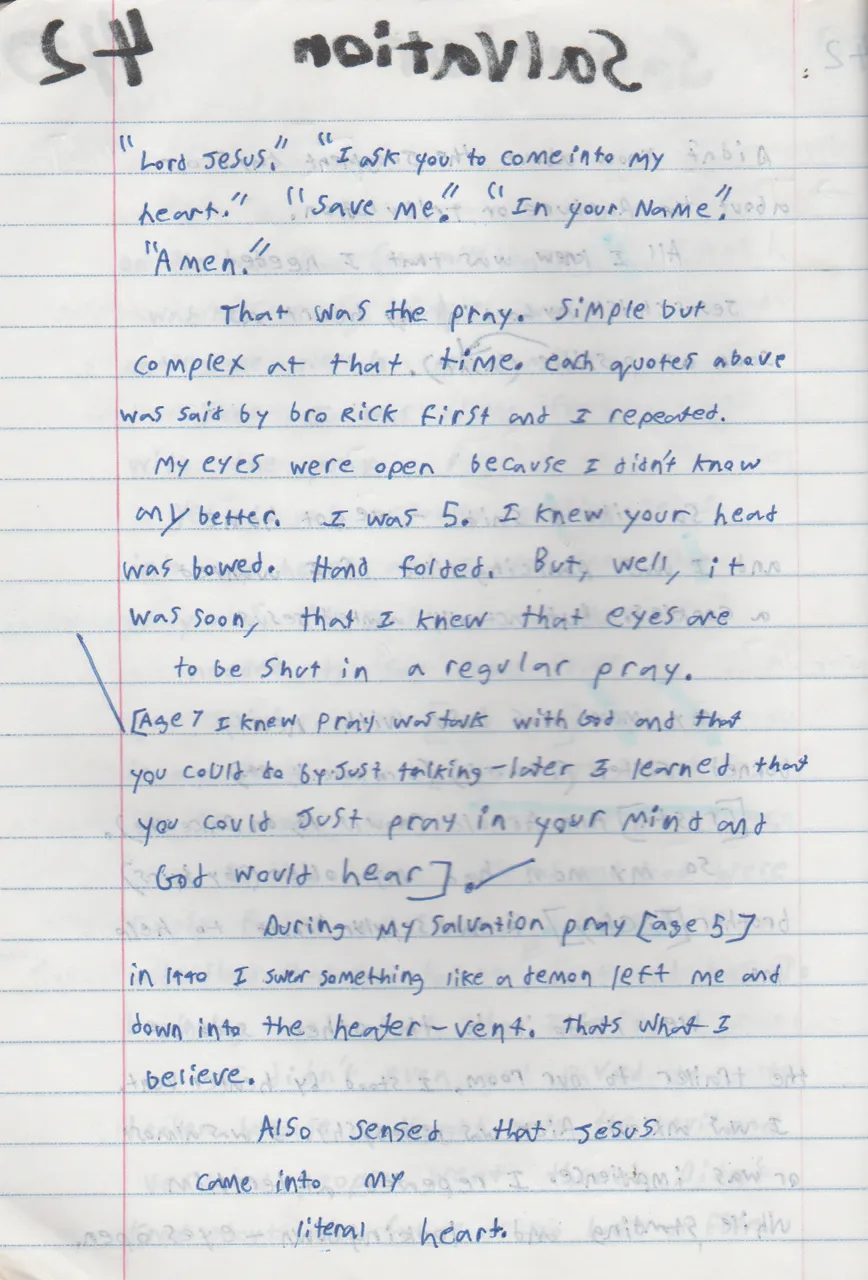 Salvation 42
"Lord Jesus." "I ask you to come into my
heart." "Save me." "In your Name."
"Amen."
That was the pray. Simple but
complex at that time. each quotes above
was said by bro Rick first and I repeated.
My eyes were open because I didn't know
any better. I was 5. I knew your head
was bowed. Hand folded. But, well, it
was soon, that I knew that eyes are
to be shut in a regular pray.
[Age 7 I knew pray was talk with God and that
you could do by just talking - later I learned that
you could just pray in your mind and
God would hear].
During my salvation pray [age 5]
in 1990 I swear something like a demon left me and
down into the heater-vent. thats what I
believe.
Also sensed that Jesus
came into my
literal heart.